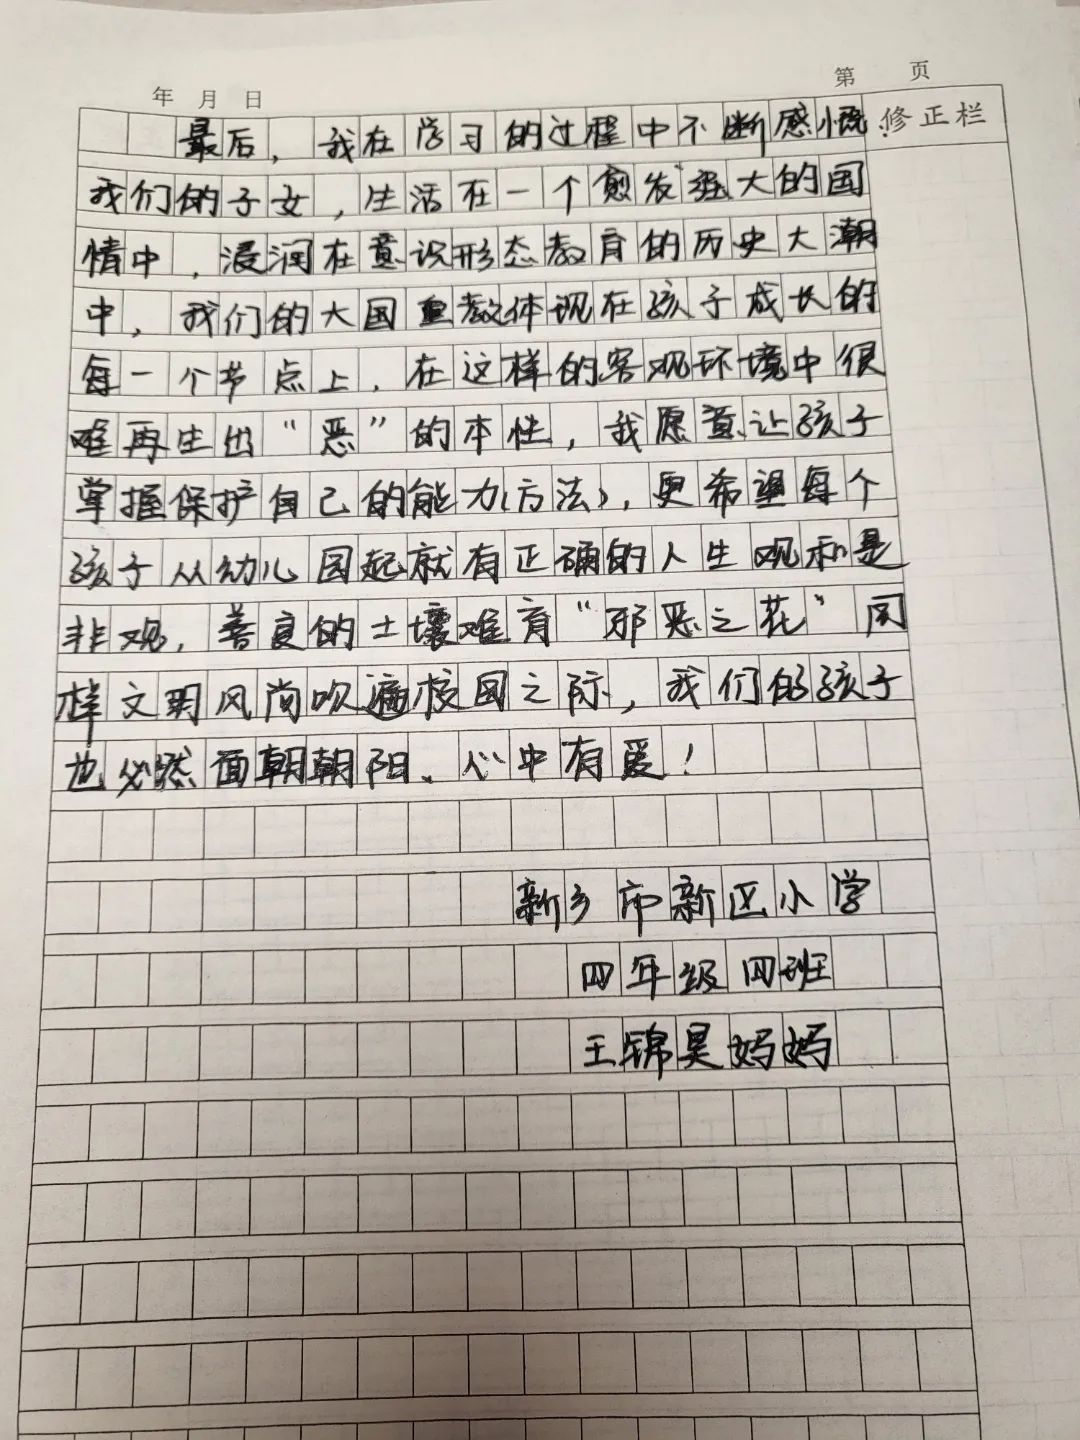 第 页
年 月 日
修正栏
最后，我在学习的过程中不断感慨：
我们的子女，生活在一个愈发强大的国
情中，浸润在意识形态教育的历史大潮
中，我们的大国重教体现在孩子成长的
每一个节点上，在这样的客观环境中很
难再生出“恶”的本性，我愿意让孩子
掌握保护自己的能力（方法），更希望每个
孩子从幼儿园起就有正确的人生观和是
非观，善良的土壤难育“邪恶之花”同
样文明风尚吹遍校园之际，我们的孩子
也必然面朝朝阳、心中有爱！
新乡市新区小学
四年级四班
王锦昊妈妈